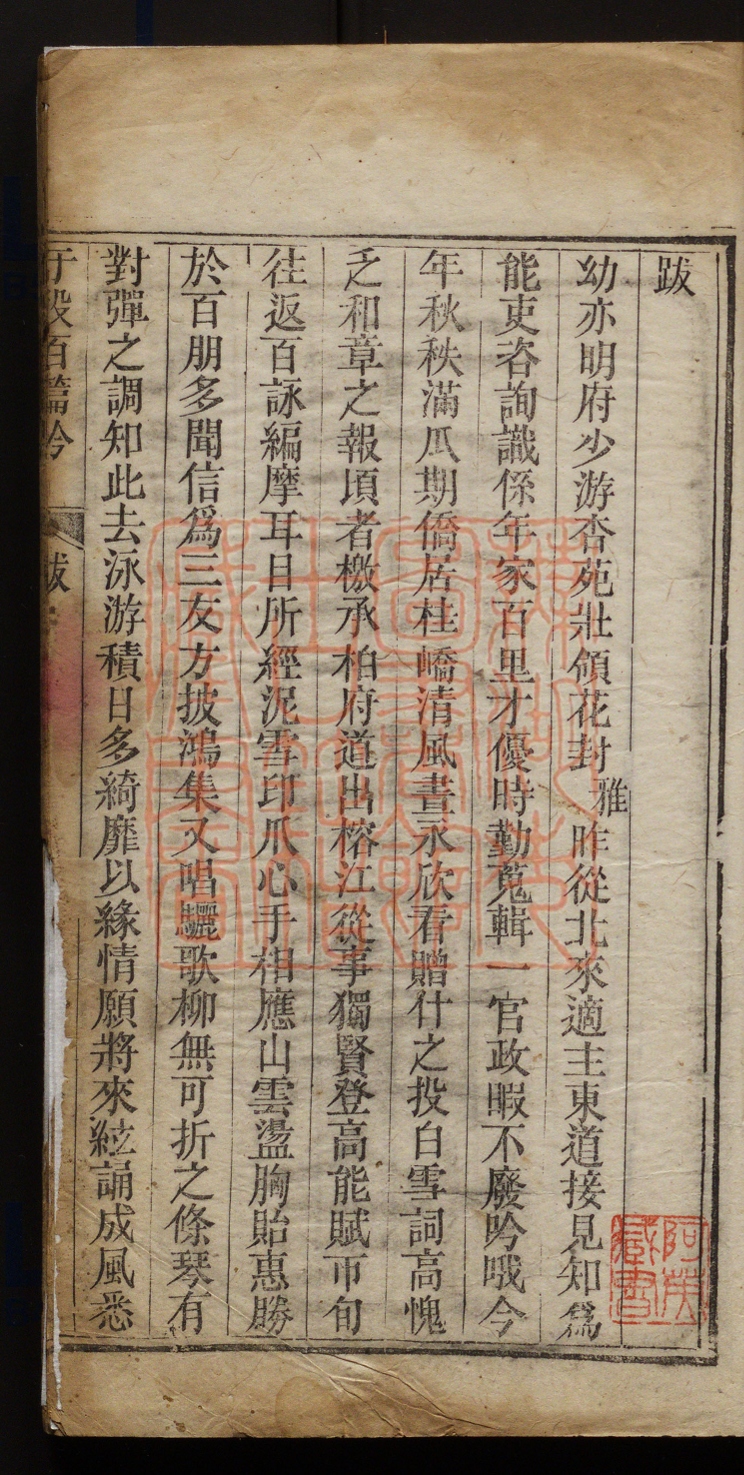 跋
幼亦明府少游杏苑壯領花封雅昨從北來適主東道接見知爲
能吏咨詢識係年家百里才優時勤蒐輯一官政暇不廢吟哦今
年秋秩滿瓜期僑居桂嶠清風晝永欣看贈什之投白雪詞高愧
乏和章之報頃者檄承柏府道出榕江從事獨賢登高能賦帀旬
往返百詠編摩耳目所經泥雪印爪心手相應山雲盪胸貽惠勝
於百朋多聞信爲三友方披鴻集又唱驪歌柳無可折之條琴有
對彈之調知此去泳游積日多綺靡以緣情願將來絃誦成風悉
百篇吟 跋
藏書